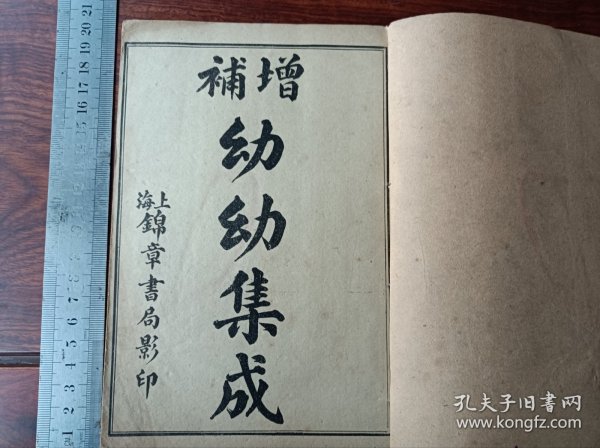 增補
幼幼集成
上海
錦章書局影印
1 2 3 4 5 6 7 8 9 10 11 12 13 14 15 16 17 18 19 20 21
孔夫子旧书网
www.kongfz.com